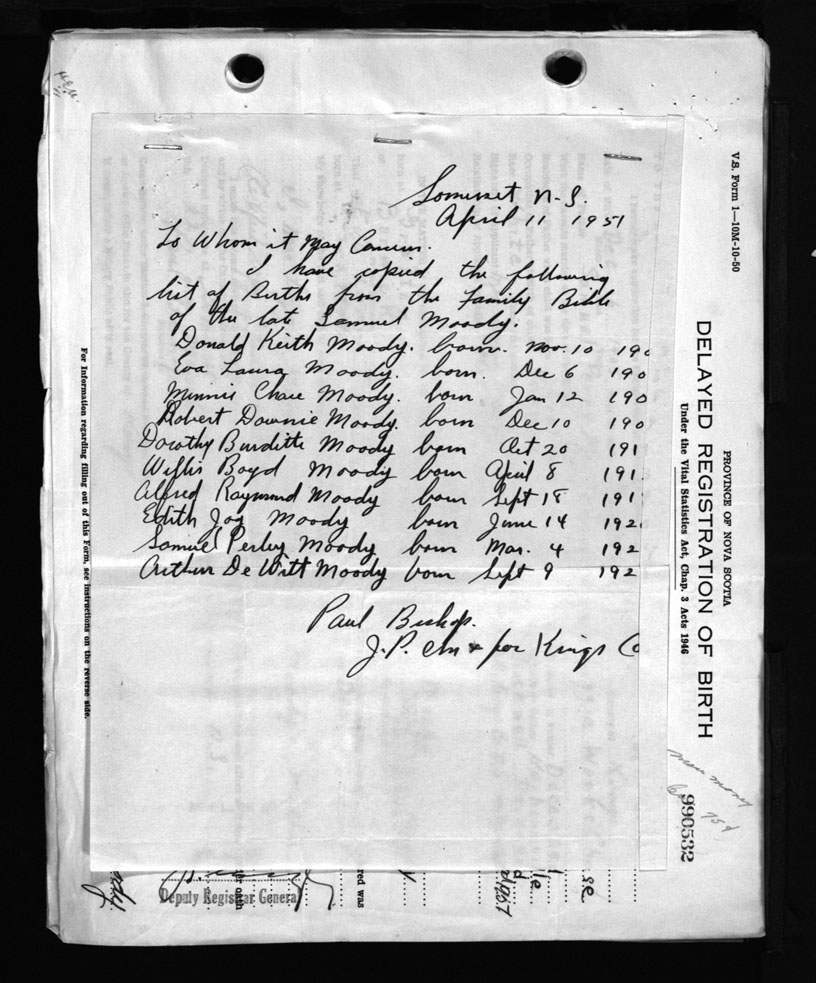 Somerset N.S.
April 11 1951
To Whom it May Concern.
I have copied the following
list of Births from the Family Bible
of the late Samuel Moody.
Donald Keith Moody. born. Nov. 10 190
Eva Laura Moody. born. Dec 6 190
Minnie Chase Moody. born Jan 12 190
Robert Downie Moody. born Dec 10 190
Dorothy Burditte Moody born Oct 20 191
Willis Boyd Moody born April 8 191
Alfred Raymond Moody born Sept 18 191
Edith Joy Moody born June 14 192
Samuel Perley Moody born Mar. 4 192
Arthur De Witt Moody born Sept 9 192
Paul Bishop.
J.P. in & for Kings Co
V.S. Form 1—10M-10-50
PROVINCE OF NOVA SCOTIA
DELAYED REGISTRATION OF BIRTH
Under the Vital Statistics Act, Chap. 3 Acts 1946
990532
75¢
For Information regarding filling out of this Form, see instructions on the reverse side.
Deputy Registrar General
red was